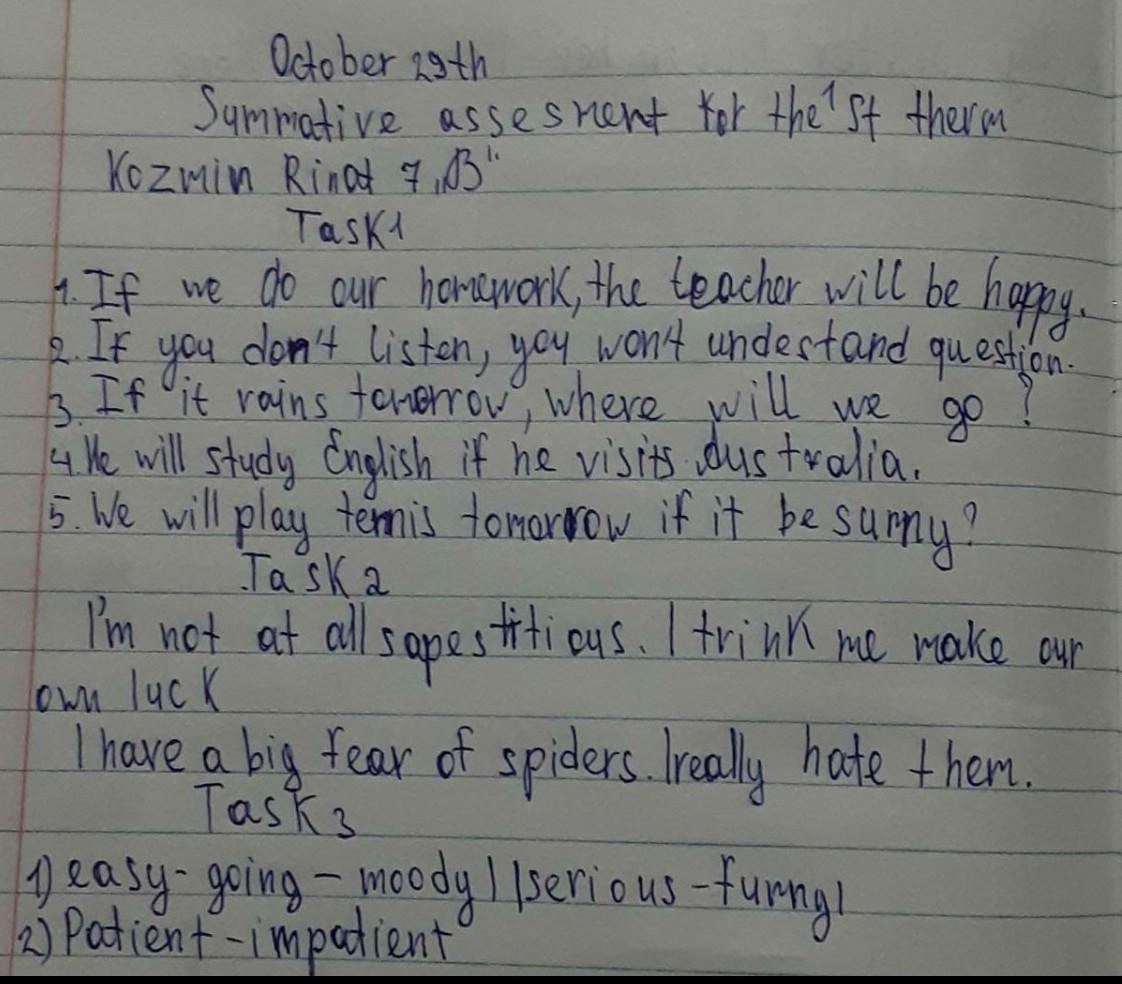 October 29th
Summative assesment for the 1st therm
Kozmin Rinat 7 „B"
Task 1
1. If we do our homework, the teacher will be happy.
2. If you don't listen, you won't undestand question.
3. If it rains tomorrow, where will we go?
4. He will study English if he visits Australia.
5. We will play tennis tomorrow if it be sunny?
Task 2
I'm not at all sopestitious. I trink me make our
own luck
I have a big fear of spiders. I really hate them.
Task 3
1) easy-going – moody | |serious – funny|
2) Patient – impatient